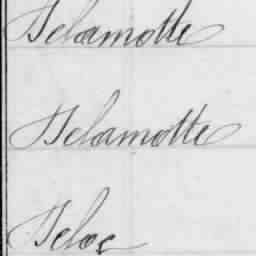 Delamotte
Delamotte
Delos